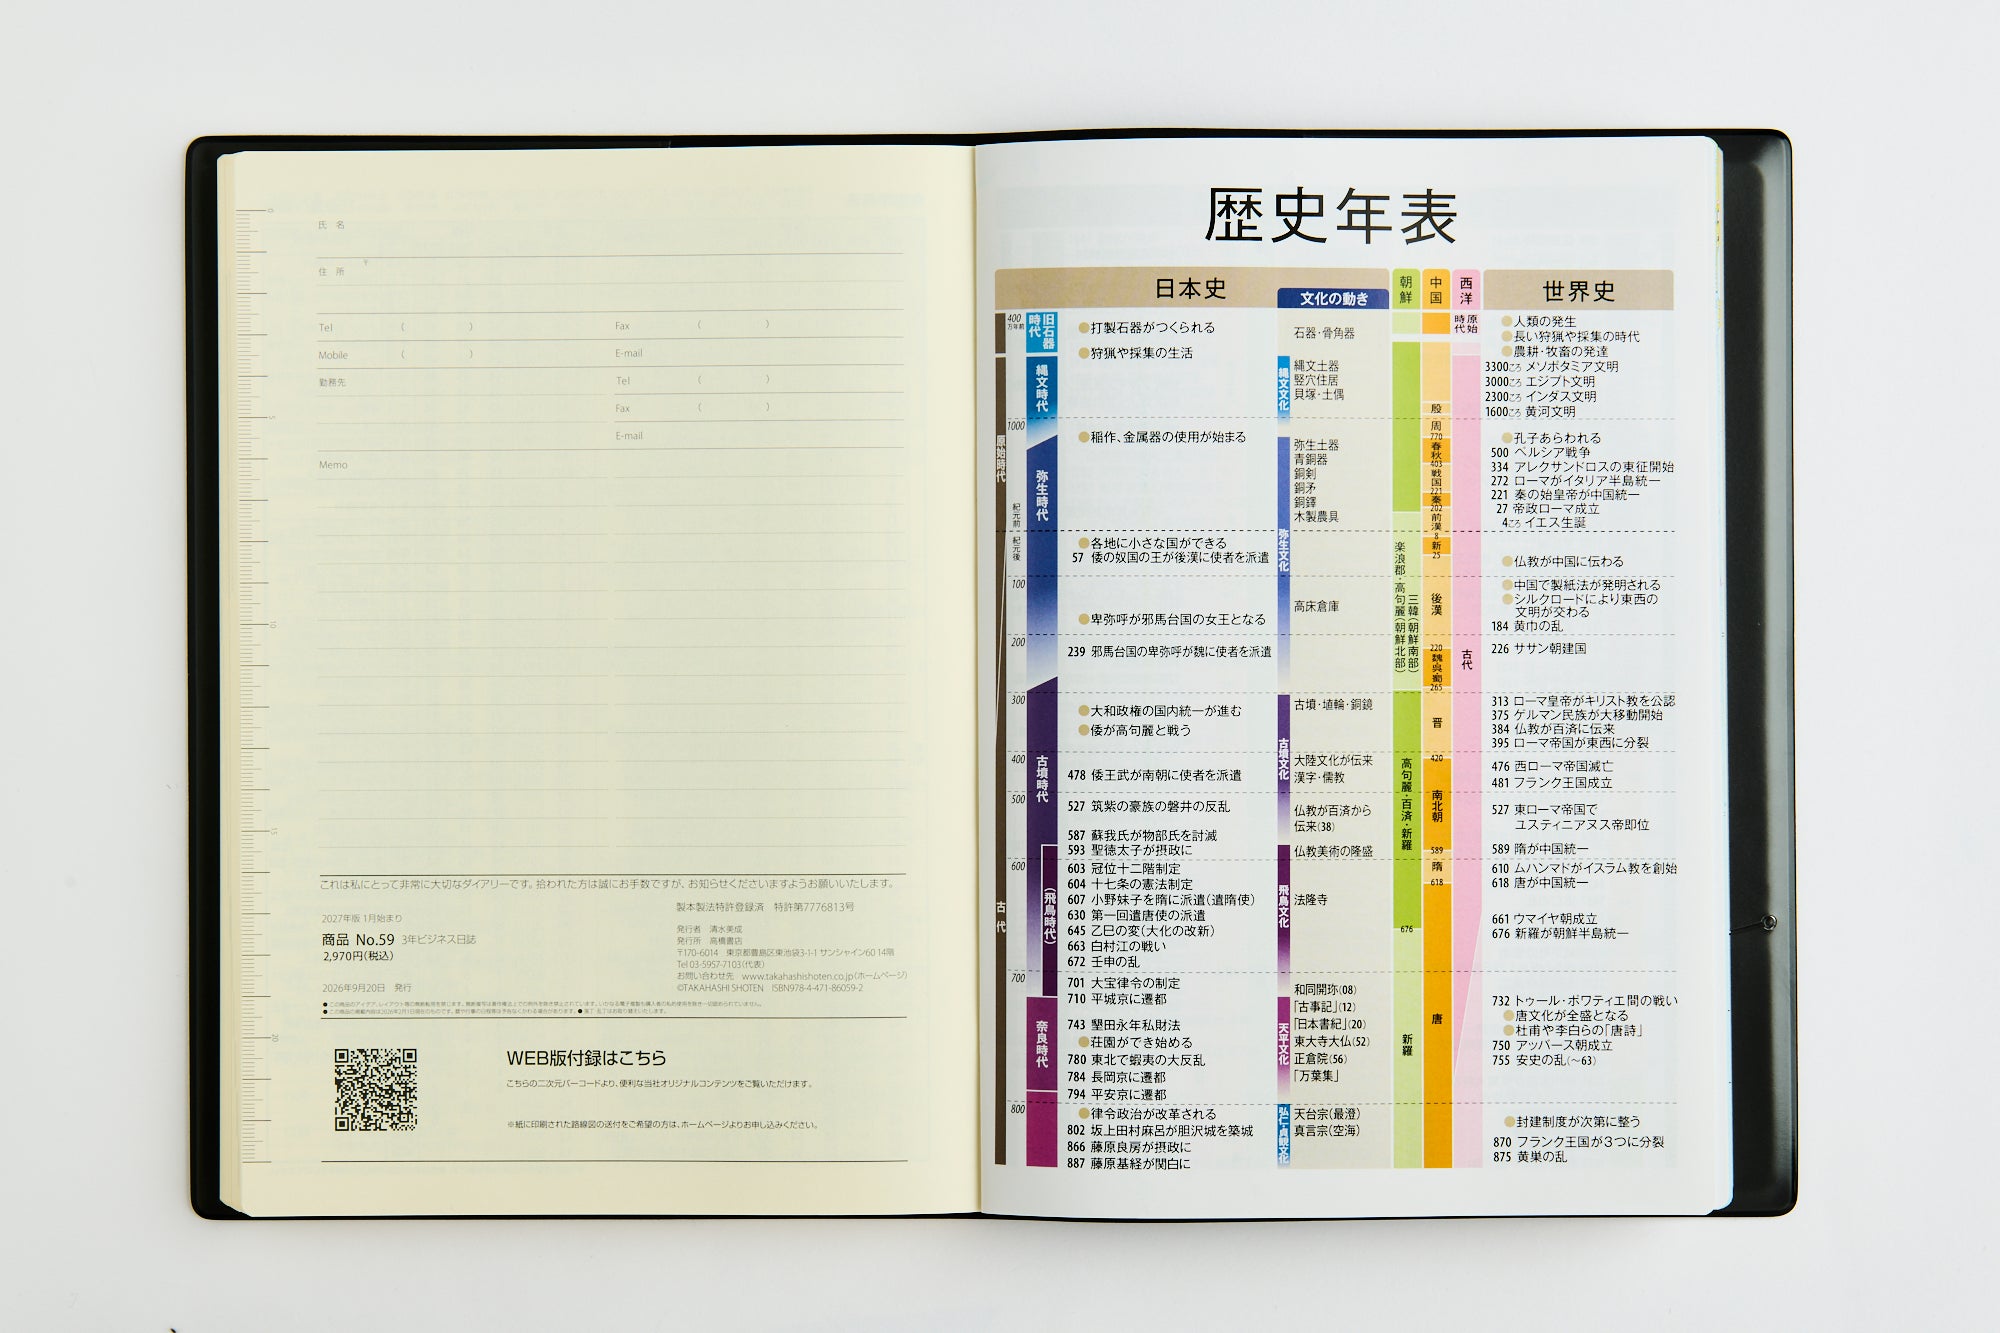 氏 名
住 所 〒
Tel ( ) Fax ( )
Mobile ( ) E-mail
勤務先 Tel ( )
Fax ( )
E-mail
Memo
0
5
10
15
20
これは私にとって非常に大切なダイアリーです。拾われた方は誠にお手数ですが、お知らせくださいますようお願いいたします。
2027年版 1月始まり
商品 No.59 3年ビジネス日誌
2,970円(税込)
2026年9月20日 発行
製本製法特許登録済 特許第7776813号
発行者 清水美成
発行所 高橋書店
〒170-6014 東京都豊島区東池袋3-1-1 サンシャイン60 14階
Tel 03-5957-7103(代表)
お問い合わせ先 www.takahashishoten.co.jp(ホームページ)
©TAKAHASHI SHOTEN ISBN978-4-471-86059-2
WEB版付録はこちら
こちらの二次元バーコードより、便利な当社オリジナルコンテンツをご覧いただけます。
※紙に印刷された路線図の送付をご希望の方は、ホームページよりお申し込みください。
歴史年表
日本史
文化の動き
朝鮮
中国
西洋
世界史
400万年前
1000
紀元前
紀元後
100
200
300
400
500
600
700
800
原始時代
古代
旧石器時代
縄文時代
弥生時代
古墳時代
(飛鳥時代)
奈良時代
●打製石器がつくられる
●狩猟や採集の生活
●稲作、金属器の使用が始まる
●各地に小さな国ができる
57 倭の奴国の王が後漢に使者を派遣
●卑弥呼が邪馬台国の女王となる
239 邪馬台国の卑弥呼が魏に使者を派遣
●大和政権の国内統一が進む
●倭が高句麗と戦う
478 倭王武が南朝に使者を派遣
527 筑紫の豪族の磐井の反乱
587 蘇我氏が物部氏を討滅
593 聖徳太子が摂政に
603 冠位十二階制定
604 十七条の憲法制定
607 小野妹子を隋に派遣(遣隋使)
630 第一回遣唐使の派遣
645 乙巳の変(大化の改新)
663 白村江の戦い
672 壬申の乱
701 大宝律令の制定
710 平城京に遷都
743 墾田永年私財法
●荘園ができ始める
780 東北で蝦夷の大反乱
784 長岡京に遷都
794 平安京に遷都
●律令政治が改革される
802 坂上田村麻呂が胆沢城を築城
866 藤原良房が摂政に
887 藤原基経が関白に
縄文文化
弥生文化
古墳文化
飛鳥文化
天平文化
弘仁・貞観文化
石器・骨角器
縄文土器
竪穴住居
貝塚・土偶
弥生土器
青銅器
銅剣
銅矛
銅鐸
木製農具
高床倉庫
古墳・埴輪・銅鏡
大陸文化が伝来
漢字・儒教
仏教が百済から
伝来(38)
仏教美術の隆盛
法隆寺
和同開珎(08)
「古事記」(12)
「日本書紀」(20)
東大寺大仏(52)
正倉院(56)
「万葉集」
天台宗(最澄)
真言宗(空海)
楽浪郡・高句麗(朝鮮北部)
三韓(朝鮮南部)
高句麗・百済・新羅
676
新羅
殷
周
770
春秋
403
戦国
221
秦
202
前漢
8
新
25
後漢
220
魏呉蜀
265
晋
420
南北朝
589
隋
618
唐
原始時代
古代
●人類の発生
●長い狩猟や採集の時代
●農耕・牧畜の発達
3300ころ メソポタミア文明
3000ころ エジプト文明
2300ころ インダス文明
1600ころ 黄河文明
●孔子あらわれる
500 ペルシア戦争
334 アレクサンドロスの東征開始
272 ローマがイタリア半島統一
221 秦の始皇帝が中国統一
27 帝政ローマ成立
4ころ イエス生誕
●仏教が中国に伝わる
●中国で製紙法が発明される
●シルクロードにより東西の
文明が交わる
184 黄巾の乱
226 ササン朝建国
313 ローマ皇帝がキリスト教を公認
375 ゲルマン民族が大移動開始
384 仏教が百済に伝来
395 ローマ帝国が東西に分裂
476 西ローマ帝国滅亡
481 フランク王国成立
527 東ローマ帝国で
ユスティニアヌス帝即位
589 隋が中国統一
610 ムハンマドがイスラム教を創始
618 唐が中国統一
661 ウマイヤ朝成立
676 新羅が朝鮮半島統一
732 トゥール・ポワティエ間の戦い
●唐文化が全盛となる
●杜甫や李白らの「唐詩」
750 アッバース朝成立
755 安史の乱(〜63)
●封建制度が次第に整う
870 フランク王国が3つに分裂
875 黄巣の乱